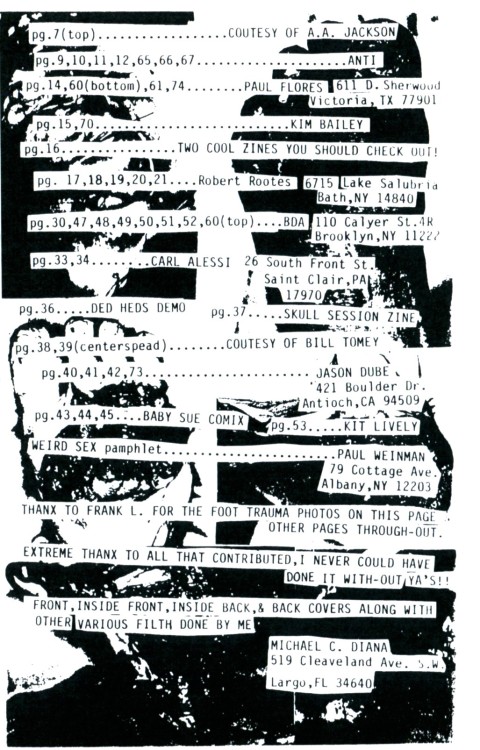 pg.7(top)..................COUTESY OF A.A. JACKSON
pg.9,10,11,12,65,66,67.....................ANTI
pg.14,60(bottom),61,74........PAUL FLORES 611 D. Sherwood
Victoria, TX 77901
pg.15,70...........................KIM BAILEY
pg.16................TWO COOL ZINES YOU SHOULD CHECK OUT!
pg. 17,18,19,20,21....Robert Rootes 6715 Lake Salubria
Bath,NY 14840
pg.30,47,48,49,50,51,52,60(top)....BDA 110 Calyer St.4R
Brooklyn,NY 11222
pg.33,34........CARL ALESSI 26 South Front St.
Saint Clair,PA
17970
pg.36.....DED HEDS DEMO
pg.37.....SKULL SESSION ZINE
pg.38,39(centerspead)........COUTESY OF BILL TOMEY
pg.40,41,42,73...................JASON DUBE
421 Boulder Dr.
Antioch,CA 94509
pg.43,44,45....BABY SUE COMIX
pg.53.....KIT LIVELY
WEIRD SEX pamphlet.......................PAUL WEINMAN
79 Cottage Ave.
Albany,NY 12203
THANX TO FRANK L. FOR THE FOOT TRAUMA PHOTOS ON THIS PAGE
OTHER PAGES THROUGH-OUT.
EXTREME THANX TO ALL THAT CONTRIBUTED,I NEVER COULD HAVE
DONE IT WITH-OUT YA'S!!
FRONT,INSIDE FRONT,INSIDE BACK,& BACK COVERS ALONG WITH
OTHER VARIOUS FILTH DONE BY ME
MICHAEL C. DIANA
519 Cleaveland Ave. S.W.
Largo,FL 34640